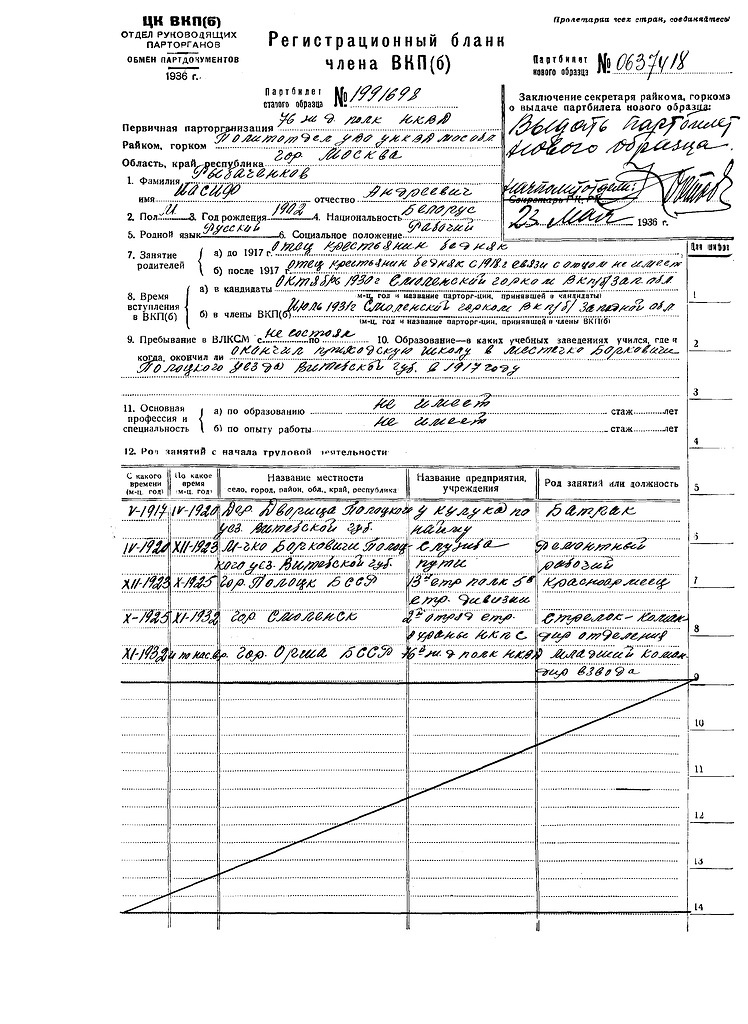 ЦК ВКП(б)
ОТДЕЛ РУКОВОДЯЩИХ
ПАРТОРГАНОВ
ОБМЕН ПАРТДОКУМЕНТОВ
1936 г.
Пролетарии всех стран, соединяйтесь!
Регистрационный бланк
члена ВКП(б)
Партбилет
старого образца №1991698
Партбилет
нового образца №0637418
Заключение секретаря райкома, горкома
о выдаче партбилета нового образца:
Выдать партбилет
нового образца.
Секретарь РК, ГК
23 Мая 1936 г.
76 ж д полк НКВД
Первичная парторганизация
Райком, горком Политотдел УВО УНКВД Моск обл
Область, край, республика гор. Москва
1. Фамилия Рыбаченков
имя Иосиф отчество Андреевич
2. Пол М 3. Год рождения 1902 4. Национальность Белорус
5. Родной язык Русский 6. Социальное положение Рабочий
7. Занятие родителей
а) до 1917 г. отец крестьянин бедняк
б) после 1917 г. отец крестьянин бедняк с 1918 г связи с отцом не имеет
8. Время вступления в ВКП(б)
а) в кандидаты Октябрь 1930 г Смоленской горком ВКП/б Зап обл
(м-ц, год и название парторг-ции, принявшей в кандидаты)
б) в члены ВКП(б) Июль 1931 г Смоленской горком ВКП/б/ Западной обл
(м-ц, год и название парторг-ции, принявшей в члены ВКП(б))
9. Пребывание в ВЛКСМ с не состоял по 10. Образование—в каких учебных заведениях учился, где и
когда, окончил ли окончил приходскую школу в местечко Борковичи
Полоцкого уезда Витебской губ. в 1917 году
11. Основная профессия и специальность
а) по образованию не имеет стаж лет
б) по опыту работы не имеет стаж лет
12. Род занятий с начала трудовой деятельности
С какого времени (м-ц, год)
По какое время (м-ц, год)
Название местности
село, город, район, обл., край, республика
Название предприятия, учреждения
Род занятий или должность
V-1917 IV-1920 Дер. Дворица Полоцкого у кулука по Батрак
уез. Витебской губ. найму
IV-1920 XII-1923 М-чко Борковичи Полоц- Служба Ремонтный
кого уез. Витебской губ. пути рабочий
XII-1923 X-1925 гор. Полоцк БССР 13й стр полк 5й Красноармеец
стр. дивизии
X-1925 XI-1932 гор. Смоленск 2й отряд стр. Стрелок-коман
охраны НКПС дир отделения
XI-1932 и по нас.вр. гор. Орша БССР 76й ж.д полк НКВД младший коман-
дир взвода
Для шифров
1
2
3
4
5
6
7
8
9
10
11
12
13
14